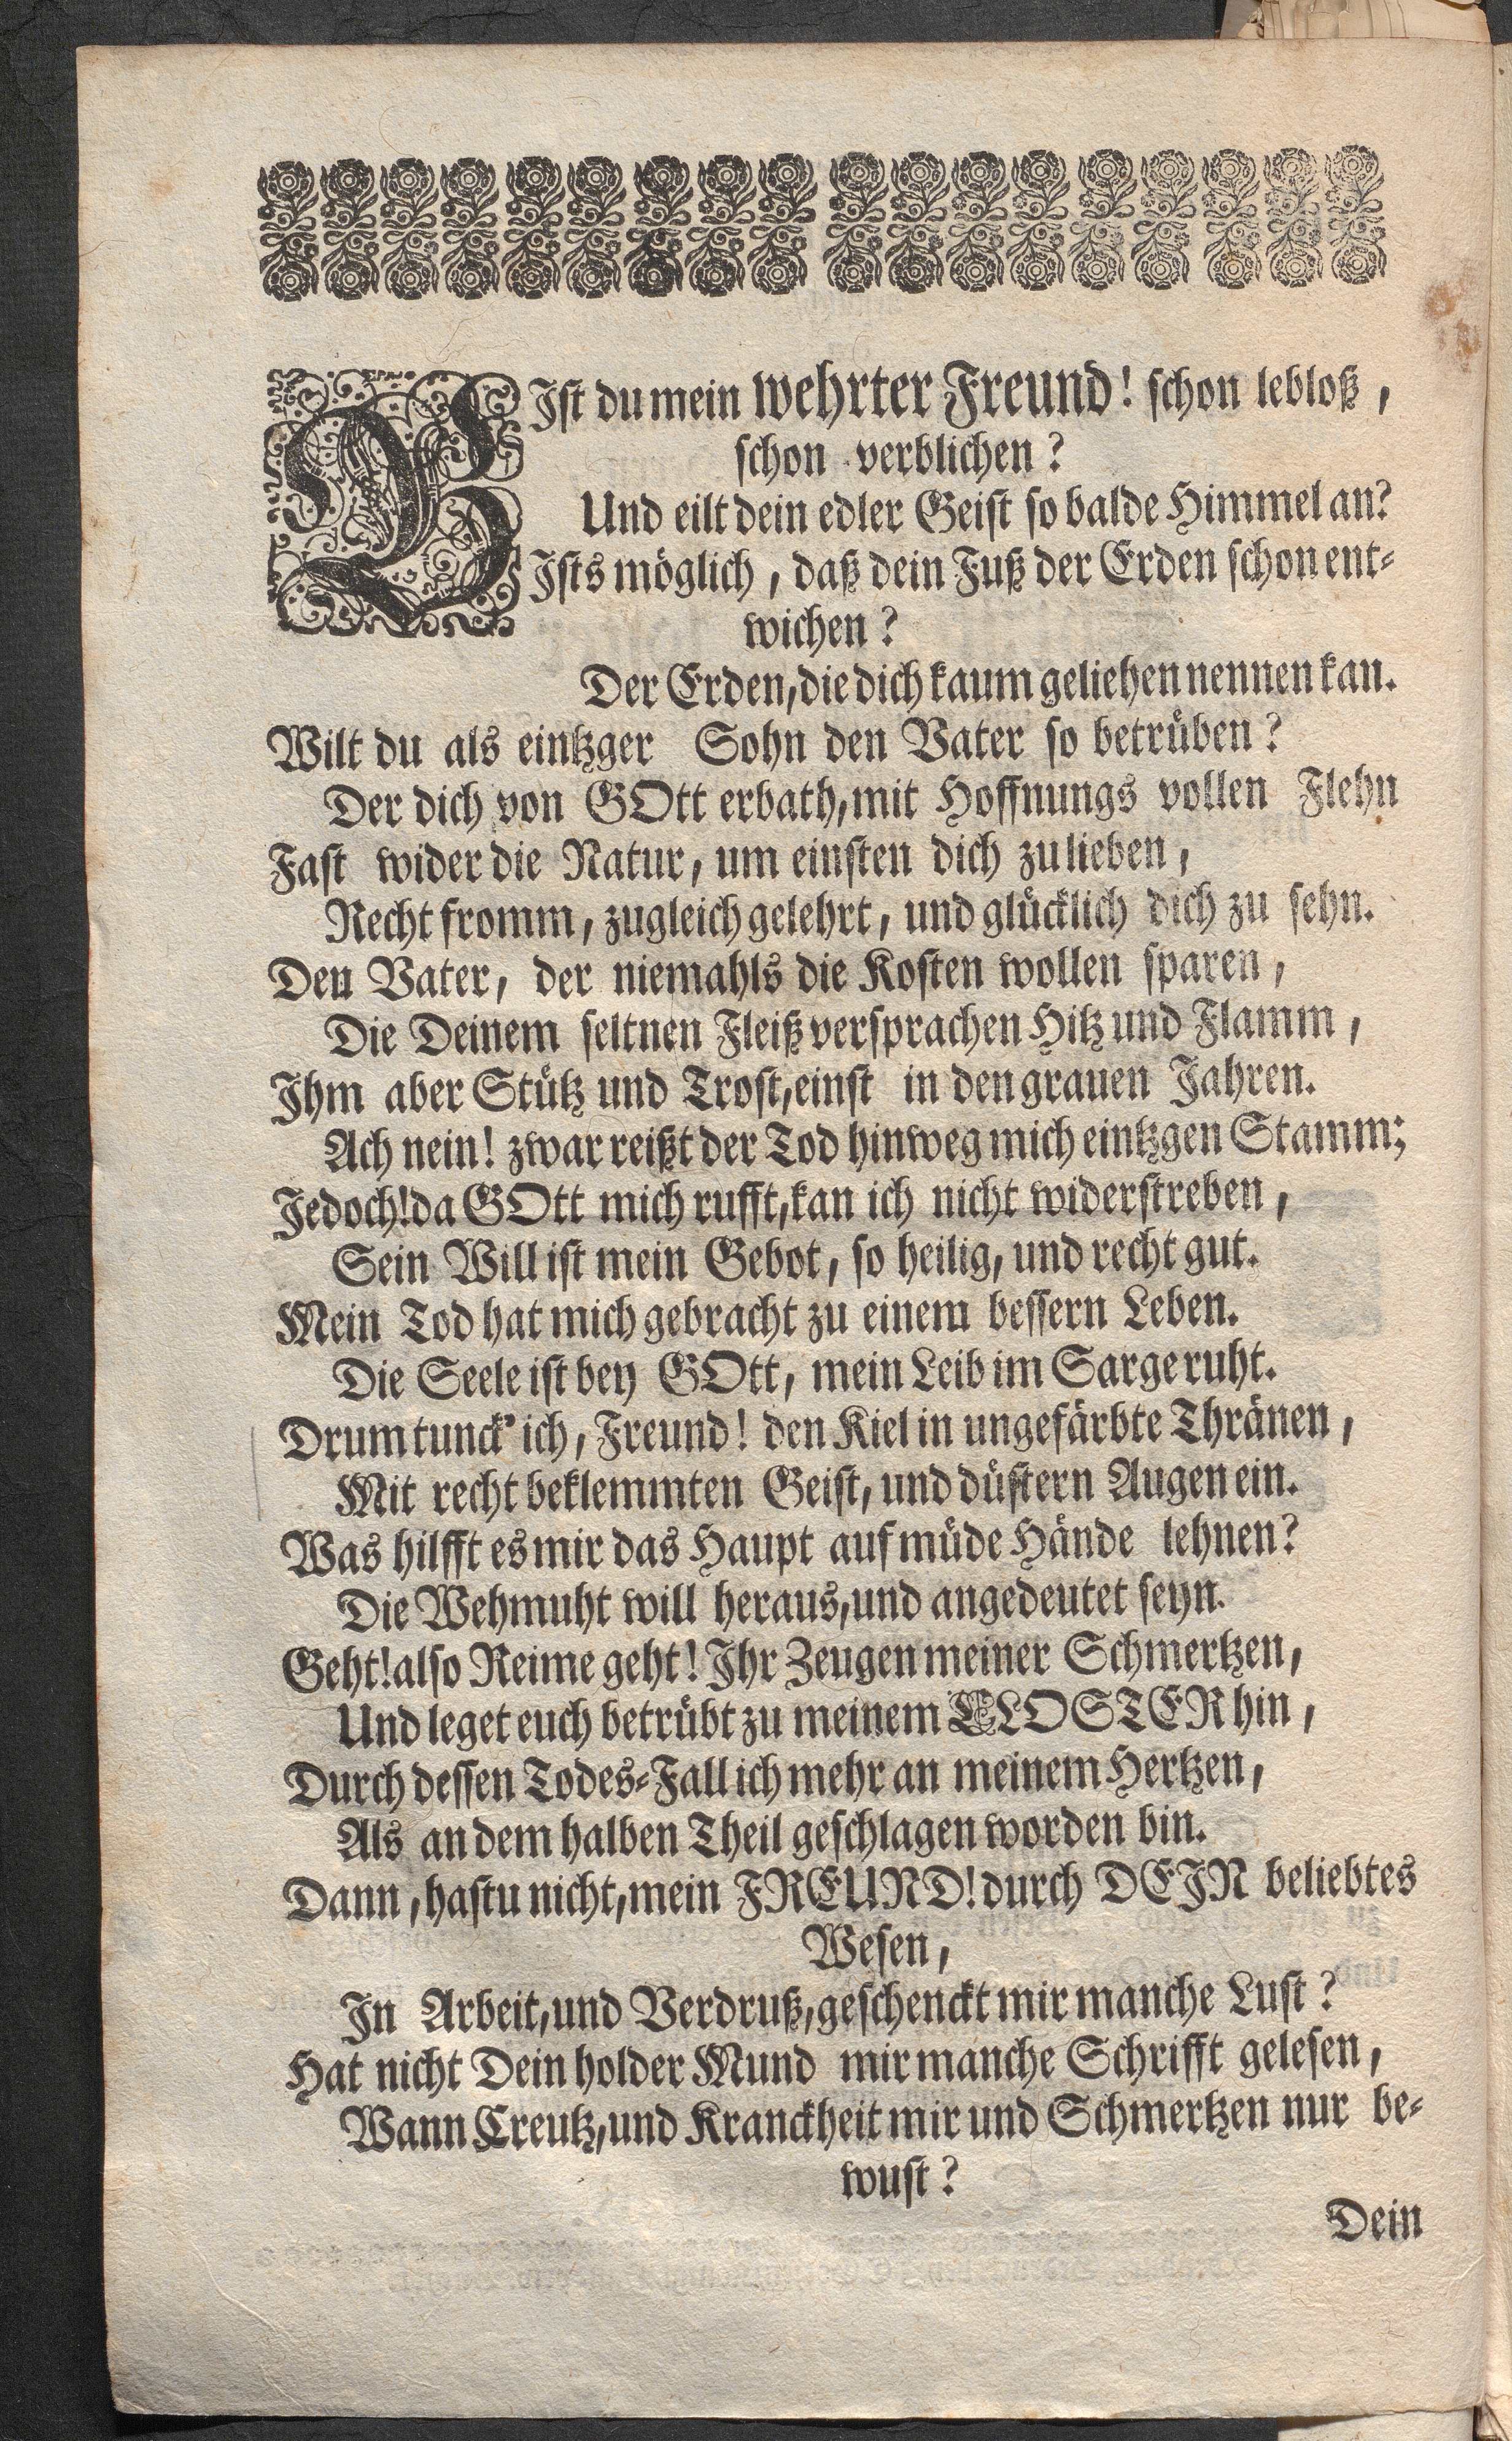 BIst du mein wehrter Freund! schon lebloß,
schon verblichen?
Und eilt dein edler Geist so balde Himmel an?
Ists möglich, daß dein Fuß der Erden schon ent-
wichen?
Der Erden, die dich kaum geliehen nennen kan.
Wilt du als eintzger Sohn den Vater so betrüben?
Der dich von GOtt erbath, mit Hoffnungs vollen Flehn
Fast wider die Natur, um einsten dich zu lieben,
Recht fromm, zugleich gelehrt, und glücklich dich zu sehn.
Den Vater, der niemahls die Kosten wollen sparen,
Die Deinem seltnen Fleiß versprachen Hitz und Flamm,
Ihm aber Stütz und Trost, einst in den grauen Jahren.
Ach nein! zwar reißt der Tod hinweg mich eintzgen Stamm;
Jedoch! da GOtt mich rufft, kan ich nicht widerstreben,
Sein Will ist mein Gebot, so heilig, und recht gut.
Mein Tod hat mich gebracht zu einem bessern Leben.
Die Seele ist bey GOtt, mein Leib im Sarge ruht.
Drum tunck' ich, Freund! den Kiel in ungefärbte Thränen,
Mit recht beklemmten Geist, und düstern Augen ein.
Was hilfft es mir das Haupt auf müde Hände lehnen?
Die Wehmuht will heraus, und angedeutet seyn.
Geht! also Reime geht! Ihr Zeugen meiner Schmertzen,
Und leget euch betrübt zu meinem CLOSTER hin,
Durch dessen Todes-Fall ich mehr an meinem Hertzen,
Als an dem halben Theil geschlagen worden bin.
Dann, hastu nicht, mein FREUND! durch DEIN beliebtes
Wesen,
In Arbeit, und Verdruß, geschenckt mir manche Lust?
Hat nicht Dein holder Mund mir manche Schrifft gelesen,
Wann Creutz, und Kranckheit mir und Schmertzen nur be-
wust?
Dein